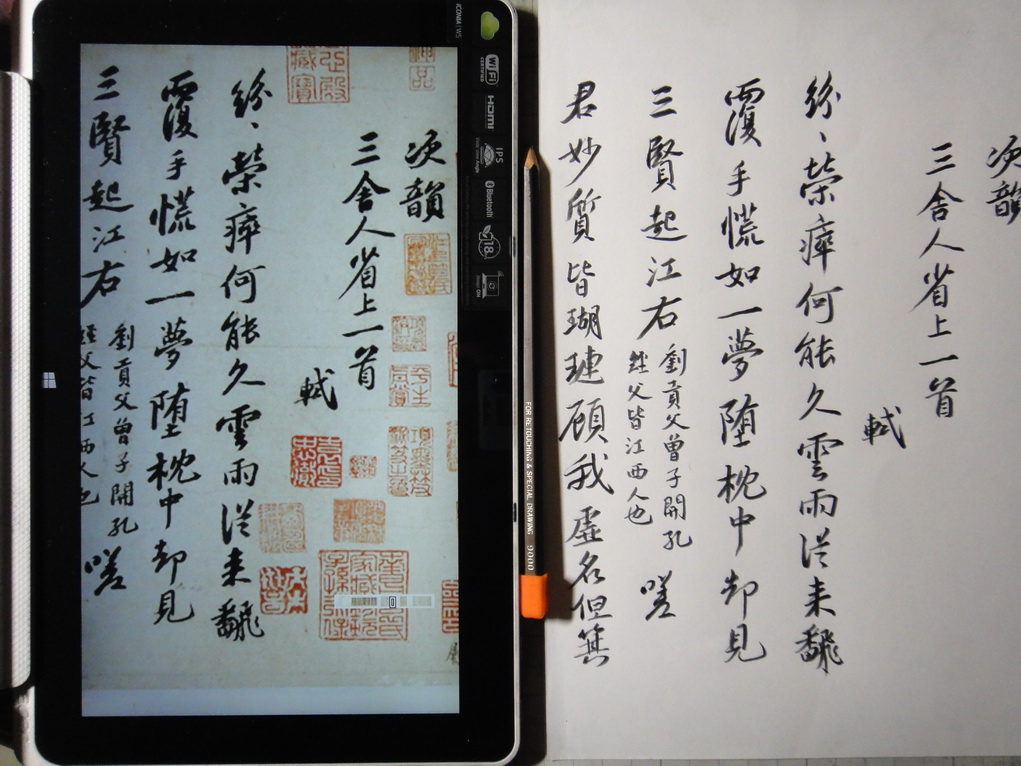 次韻
三舍人省上一首
軾
紛〻榮瘁何能久雲雨従来飜
覆手慌如一夢堕枕中却見
三賢起江右
劉貢父曾子開孔
經父皆江西人也
嗟
ICONIA W5
WiFi
CERTIFIED
HDMI
IPS
Bluetooth
FOR RETOUCHING & SPECIAL DRAWING 9000
次韻
三舍人省上一首
軾
紛〻榮瘁何能久雲雨従来飜
覆手慌如一夢堕枕中却見
三賢起江右
劉貢父曾子開孔
經父皆江西人也
嗟
君妙質皆瑚璉顧我虛名但箕